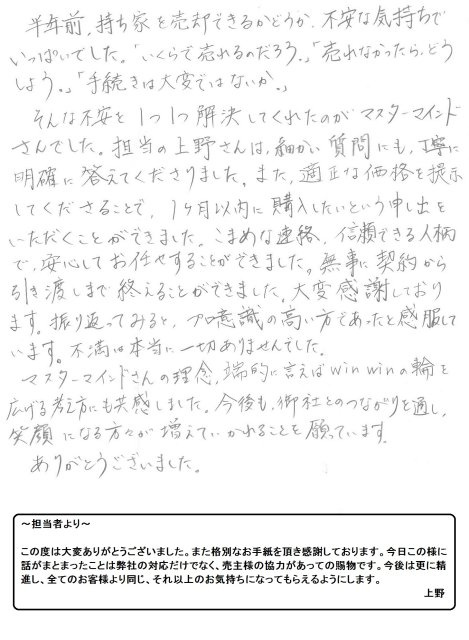 半年前、持ち家を売却できるかどうか、不安な気持ちで
いっぱいでした。「いくらで売れるのだろう。」「売れなかったら、どう
しよう。」「手続きは大変ではないか。」
そんな不安を1つ1つ解決してくれたのがマスターマインド
さんでした。担当の上野さんは、細かい質問にも、丁寧に
明確に答えてくださりました。また、適正な価格を提示
してくださることで、1ヶ月以内に購入したいという申し出を
いただくことができました。こまめな連絡、信頼できる人柄
で、安心してお任せすることができました。無事に契約から
引き渡しまで終えることができました。大変感謝しており
ます。振り返ってみると、プロ意識の高い方であったと感服して
います。不満は本当に一切ありませんでした。
マスターマインドさんの理念、端的に言えばwin winの輪を
広げる考え方にも共感しました。今後も、御社とのつながりを通し、
笑顔になる方々が増えていかれることを願っています。
ありがとうございました。
～担当者より～
この度は大変ありがとうございました。また格別なお手紙を頂き感謝しております。今日この様に
話がまとまったことは弊社の対応だけでなく、売主様の協力があっての賜物です。今後は更に精
進し、全てのお客様より同じ、それ以上のお気持ちになってもらえるようにします。
上野